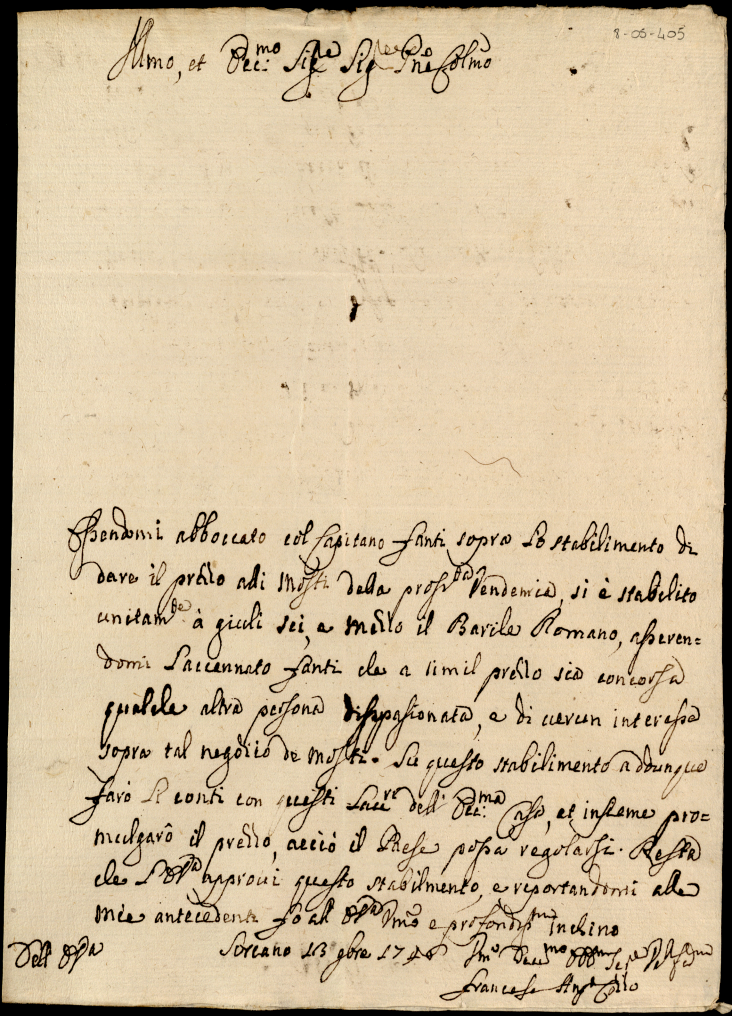 8-06-405
Illmo, et Ecc:mo Sigre Sigre Pne Colmo
Essendomi abboccato col Capitano Fanti sopra lo stabilimento di
dare il prezzo alli Mosti della prossma Vendemia, si è stabilito
unitamte à giuli sei, e mezzo il Barile Romano, asseren=
domi l'accennato Fanti che a simil prezzo sia concorsa
qualche altra persona disppasionata, e di verun interesse
sopra tal negozio de Mosti. Su questo stabilimento addunque
farò li conti con questi dell' Ecc:ma Casa, et insieme pro=
mulgarò il prezzo, acciò il Paese possa regolarsi. Resta
che l'E Va approvi questo stabilmento, e reportandomi alle
mie antecedenti fò all' E Va Umo e profondissmo Inchino
Dell' E Va
Sorano 13 gbre
Francesco Anto